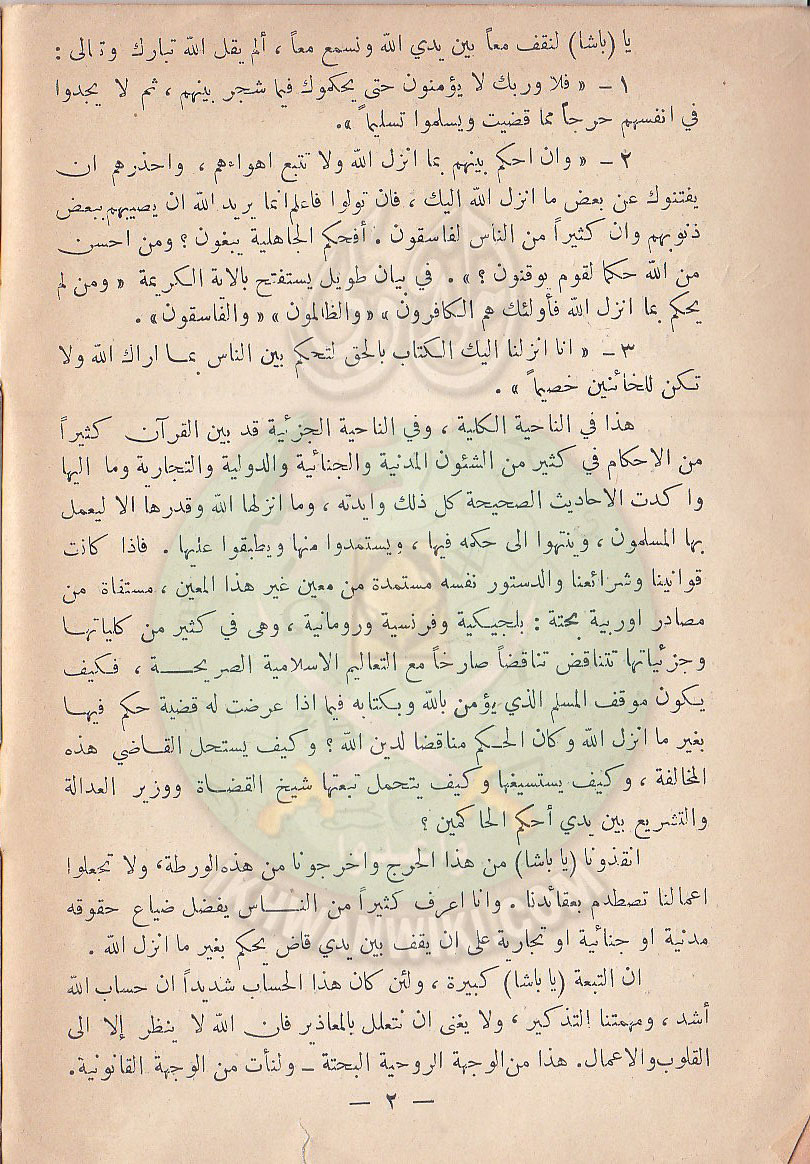 يا (باشا) لنقف معاً بين يدي الله ونسمع معاً ، ألم يقل الله تبارك وتعالى :
١ – « فلا وربك لا يؤمنون حتى يحكموك فيما شجر بينهم ، ثم لا يجدوا
في انفسهم حرجاً مما قضيت ويسلموا تسليماً ».
٢ – « وان احكم بينهم بما انزل الله ولا تتبع اهواءهم ، واحذرهم ان
يفتنوك عن بعض ما انزل الله اليك ، فان تولوا فاعلم انما يريد الله ان يصيبهم ببعض
ذنوبهم وان كثيراً من الناس لفاسقون . أفحكم الجاهلية يبغون ؟ ومن احسن
من الله حكما لقوم يوقنون ؟ » . في بيان طويل يستفتح بالاية الكريمة « ومن لم
يحكم بما انزل الله فأولئك هم الكافرون » « والظالمون » « والفاسقون » .
٣ – « انا انزلنا اليك الكتاب بالحق لتحكم بين الناس بمـا اراك الله ولا
تكن للخائنين خصيماً » .
هذا في الناحية الكلية ، وفي الناحية الجزئية قد بين القرآن كثيراً
من الاحكام في كثير من الشئون المدنية والجنائية والدولية والتجارية وما اليها
واكدت الاحاديث الصحيحة كل ذلك وايدته ، وما انزلها الله وقدرها الا ليعمل
بها المسلمون ، وينتهوا الى حكمه فيها ، ويستمدوا منها ويطبقوا عليها . فاذا كانت
قوانيننا وشرائعنا والدستور نفسه مستمدة من معين غير هذا المعين ، مستقاة من
مصادر اوربية بحتة : بلجيكية وفرنسية ورومانية ، وهى في كثير من كلياتهـا
وجزئياتها تتناقض تناقضاً صارخاً مع التعاليم الاسلامية الصريحـــة ، فـكيف
يـكون موقف المسلم الذي يؤمن بالله وبكتابه فيما اذا عرضت له قضية حكم فيهـا
بغير ما انزل الله وكان الحـكم مناقضا لدين الله ؟ وكيف يستحل القـاضي هذه
المخالفة ، وكيف يستسيغها وكيف يتحمل تبعتها شيخ القضـاة ووزير العدالة
والتشريع بين يدي أحكم الحاكمين ؟
انقذونا (يا باشا) من هذا الحرج واخرجونا من هذه الورطة، ولا تجعلوا
اعمالنا تصطدم بعقائدنا . وانا اعرف كثيراً من النـــاس يفضل ضياع حقوقه
مدنية او جنائية او تجارية على ان يقف بين يدي قاض يحكم بغير ما انزل الله .
ان التبعة (يا باشا) كبيرة ، ولئن كان هذا الحساب شديداً ان حساب الله
أشد ، ومهمتنا التذكير ، ولا يغنى ان نتعلل بالمعاذير فان الله لا ينظر إلا الى
القلوب والاعمال. هذا من الوجهة الروحية البحتة – ولنأت من الوجهة القانونية.
– ٢ –
IKHWANWIKI.COM